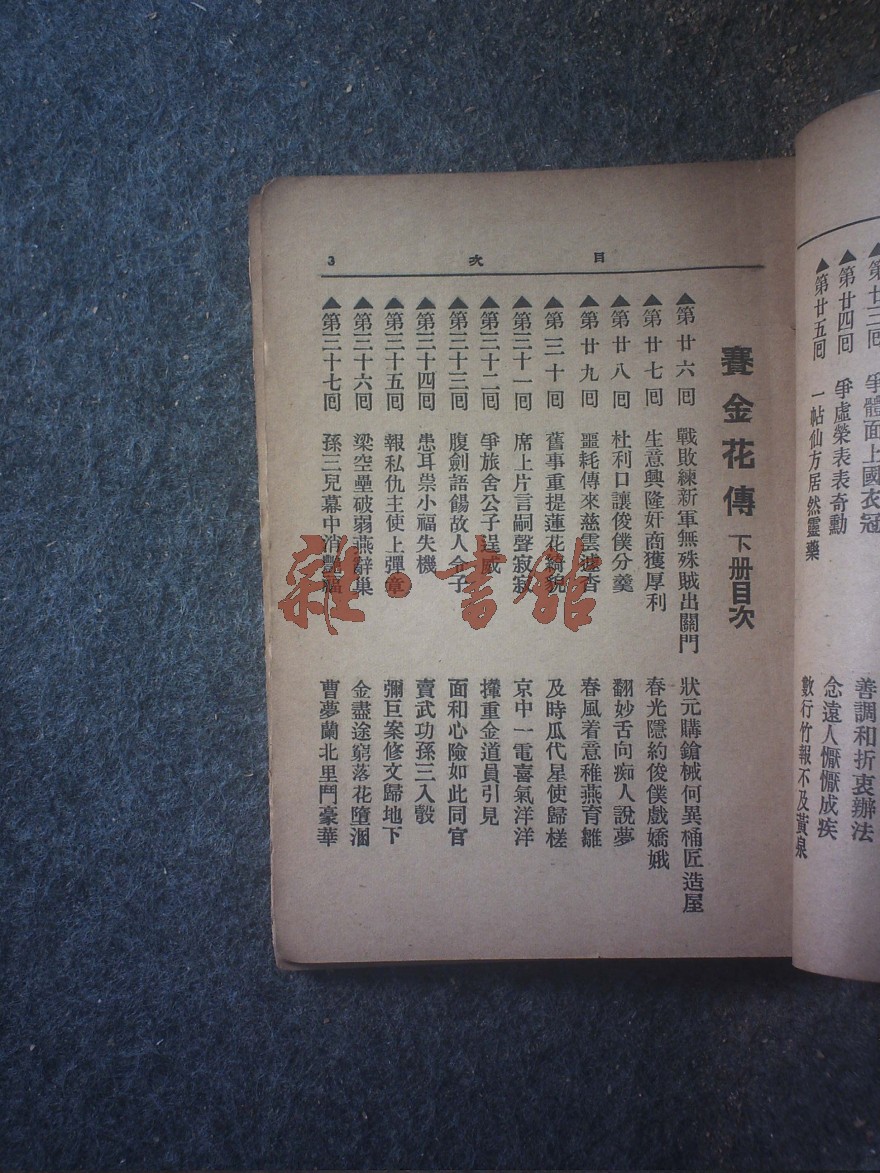 第廿三囘 爭體面上國衣冠 善調和折衷辦法
▲第廿四囘 爭虛榮表表奇勳 念遠人懨懨成疾
▲第廿五囘 一帖仙方居然靈藥 數行竹報不及黃泉
目次 3
賽金花傳 下册目次
▲第廿六囘 戰敗練新軍無殊賊出關門 狀元購鎗械何異桶匠造屋
▲第廿七囘 生意興隆奸商獲厚利 春光隱約俊僕戲嬌娥
▲第廿八囘 杜利口讓俊僕分羹 翻妙舌向痴人說夢
▲第廿九囘 噩耗傳來慈雲遽杳 春風着意稚燕育雛
▲第三十囘 舊事重提蓮花綺貌 及時瓜代星使歸槎
▲第三十一囘 席上片言嗣聲寂寂 京中一電喜氣洋洋
▲第三十二囘 爭旅舍公子逞威 攆重金道員引見
▲第三十三囘 腹劍語餳故人令子 面和心險如此同官
▲第三十四囘 患耳祟小福失機 賣武功孫三入彀
▲第三十五囘 報私仇主使上彈章 彌巨案修文歸地下
▲第三十六囘 梁空壘破弱燕辭巢 金盡途窮落花墮溷
▲第三十七囘 孫三兒幕中消艷福 曹夢蘭北里鬥豪華
雜·書館